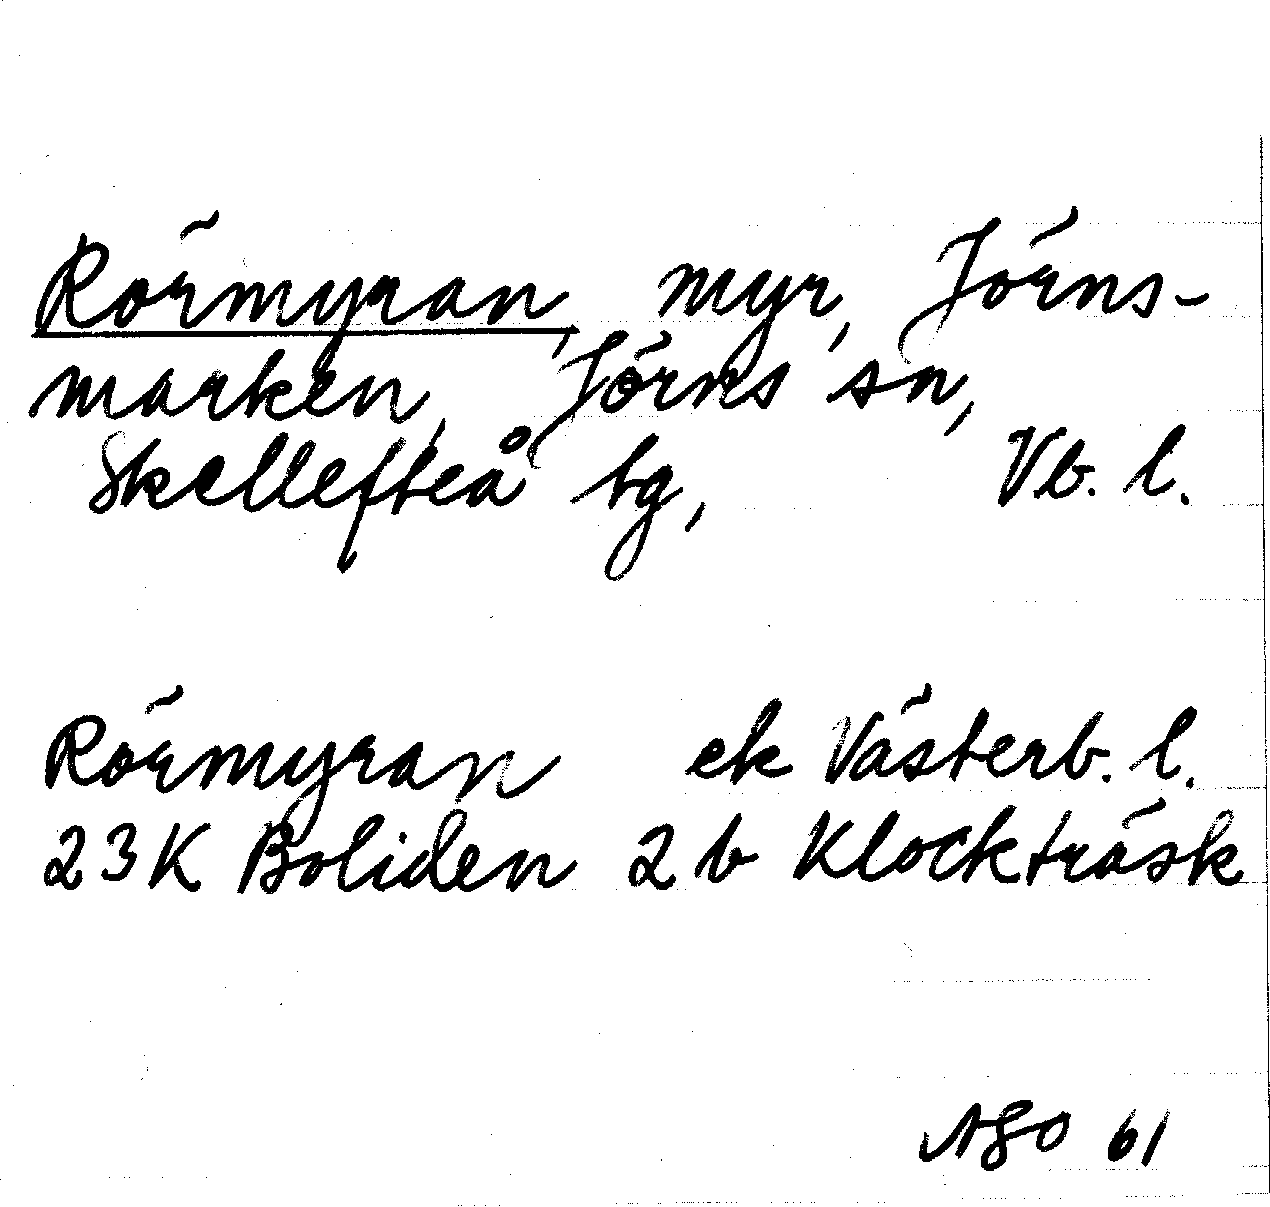 Rörmyran, myr, Jörns-
marken, Jörns sn,
Skellefteå tg, Vb. l.
Rörmyran ek Västerb. l.
23K Boliden 2 b Klockträsk
ASO 61